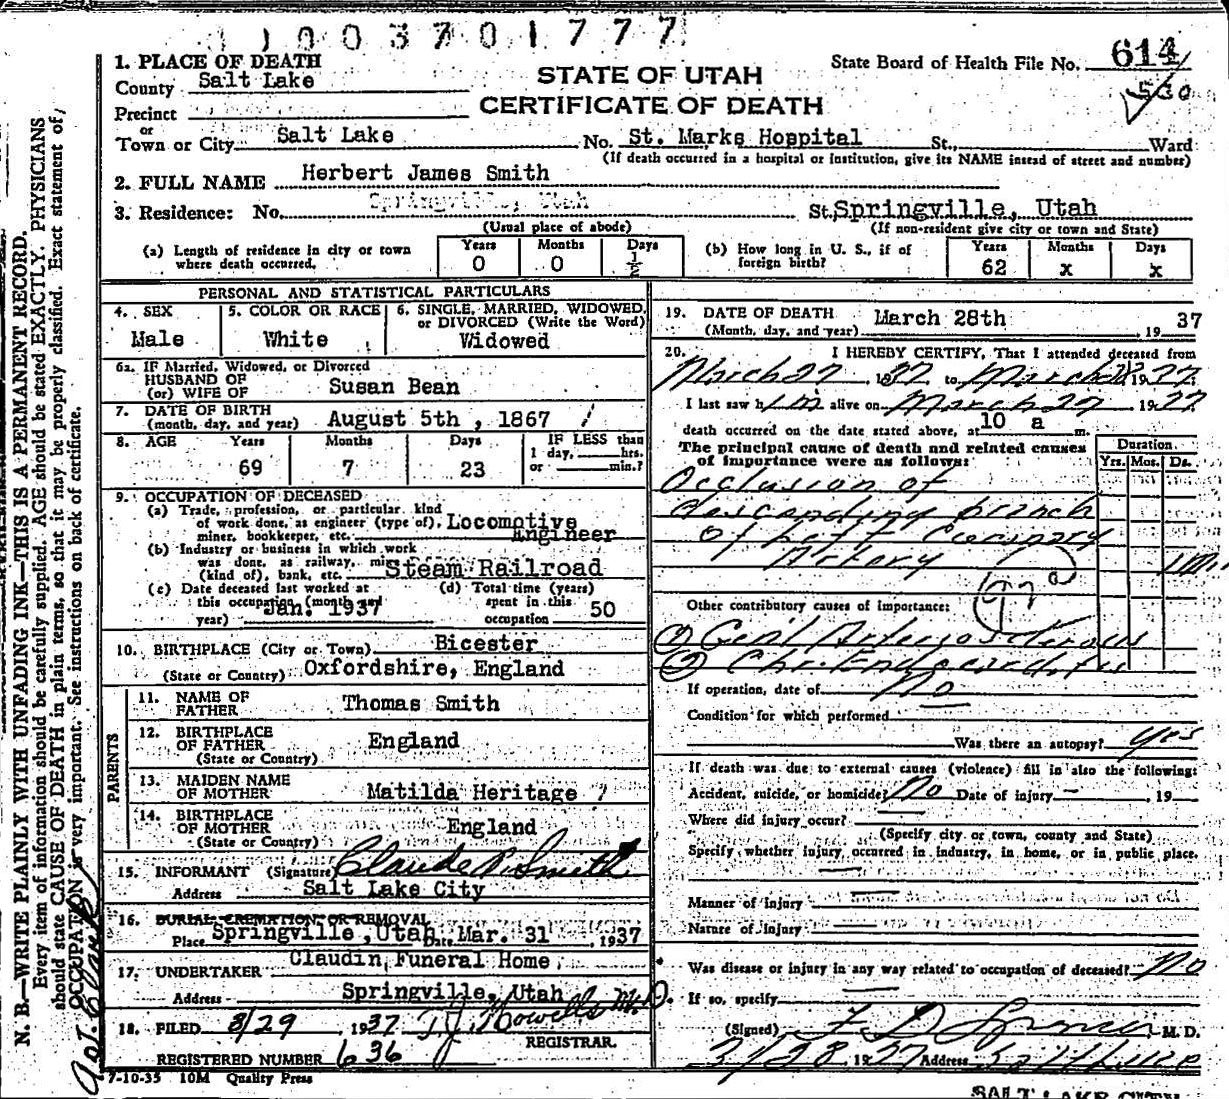 1003701777
1. PLACE OF DEATH
County Salt Lake
STATE OF UTAH
CERTIFICATE OF DEATH
State Board of Health File No. 614
530
Precinct
or
Town or City Salt Lake No. St. Marks Hospital St., Ward
(If death occurred in a hospital or institution, give its NAME instead of street and number)
2. FULL NAME Herbert James Smith
3. Residence: No. Springville, Utah St. Springville, Utah
(Usual place of abode) (If non-resident give city or town and State)
(a) Length of residence in city or town where death occurred. Years 0 Months 0 Days 1/2
(b) How long in U. S., if of foreign birth? Years 62 Months x Days x
PERSONAL AND STATISTICAL PARTICULARS
4. SEX Male
5. COLOR OR RACE White
6. SINGLE, MARRIED, WIDOWED, or DIVORCED (Write the Word) Widowed
6a. IF Married, Widowed, or Divorced
HUSBAND OF
(or) WIFE OF Susan Bean
7. DATE OF BIRTH
(month, day, and year) August 5th, 1867
8. AGE Years 69 Months 7 Days 23 IF LESS than 1 day, hrs. or min.?
9. OCCUPATION OF DECEASED
(a) Trade, profession, or particular kind
of work done, as engineer (type of), Locomotive
miner, bookkeeper, etc. Engineer
(b) Industry or business in which work
was done, as railway, mi
(kind of), bank, etc. Steam Railroad
(c) Date deceased last worked at
this occupation (month and
year) Jan. 1937
(d) Total time (years)
spent in this
occupation 50
10. BIRTHPLACE (City or Town) Bicester
(State or Country) Oxfordshire, England
PARENTS
11. NAME OF FATHER Thomas Smith
12. BIRTHPLACE OF FATHER England
(State or Country)
13. MAIDEN NAME OF MOTHER Matilda Heritage
14. BIRTHPLACE OF MOTHER England
(State or Country)
15. INFORMANT (Signature) Claude P. Smith
Address Salt Lake City
16. BURIAL, CREMATION, OR REMOVAL
Place Springville, Utah Date Mar. 31, 1937
17. UNDERTAKER Claudin Funeral Home
Address Springville, Utah
18. FILED 3/29, 1937 T J Howells M.D.
REGISTRAR.
REGISTERED NUMBER 636
7-10-35 10M Quality Press
19. DATE OF DEATH
(Month, day, and year) March 28th, 1937
20. I HEREBY CERTIFY, That I attended deceased from
March 27 1937 to March 28 1937
I last saw him alive on March 27 1937
death occurred on the date stated above, at 10 a m.
The principal cause of death and related causes
of importance were as follows:
Duration
Yrs. Mos. Ds.
Occlusion of
descending branch
of Left Coronary
Artery
Other contributory causes of importance:
(1) Gen'l Arteriosclerosis
(2) Chr. Endocarditis
If operation, date of no
Condition for which performed
Was there an autopsy? yes
If death was due to external causes (violence) fill in also the following:
Accident, suicide, or homicide? no Date of injury — 19
Where did injury occur?
(Specify city or town, county and State)
Specify whether injury occurred in industry, in home, or in public place.
Manner of injury
Nature of injury
Was disease or injury in any way related to occupation of deceased? no
If so, specify
(Signed) M. D.
3/28, 1937 Address
SALT LAKE CITY
N. B.—WRITE PLAINLY WITH UNFADING INK—THIS IS A PERMANENT RECORD.
Every item of information should be carefully supplied. AGE should be stated EXACTLY. PHYSICIANS
should state CAUSE OF DEATH in plain terms, so that it may be properly classified. Exact statement of
OCCUPATION is very important. See instructions on back of certificate.